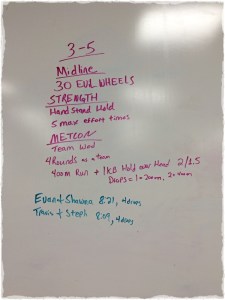 3-5
Midline
30 EVIL WHEELS
STRENGTH
Hand Stand Hold
5 max effort times
METCON
Team Wod
4 Rounds as a team
400m Run + 1KB Hold over Head 2/1.5
Drops = 1=200m, 2=400m
Evan + Shawna 8:21, 4 drops
Travis + Steph 8:09, 4 drops